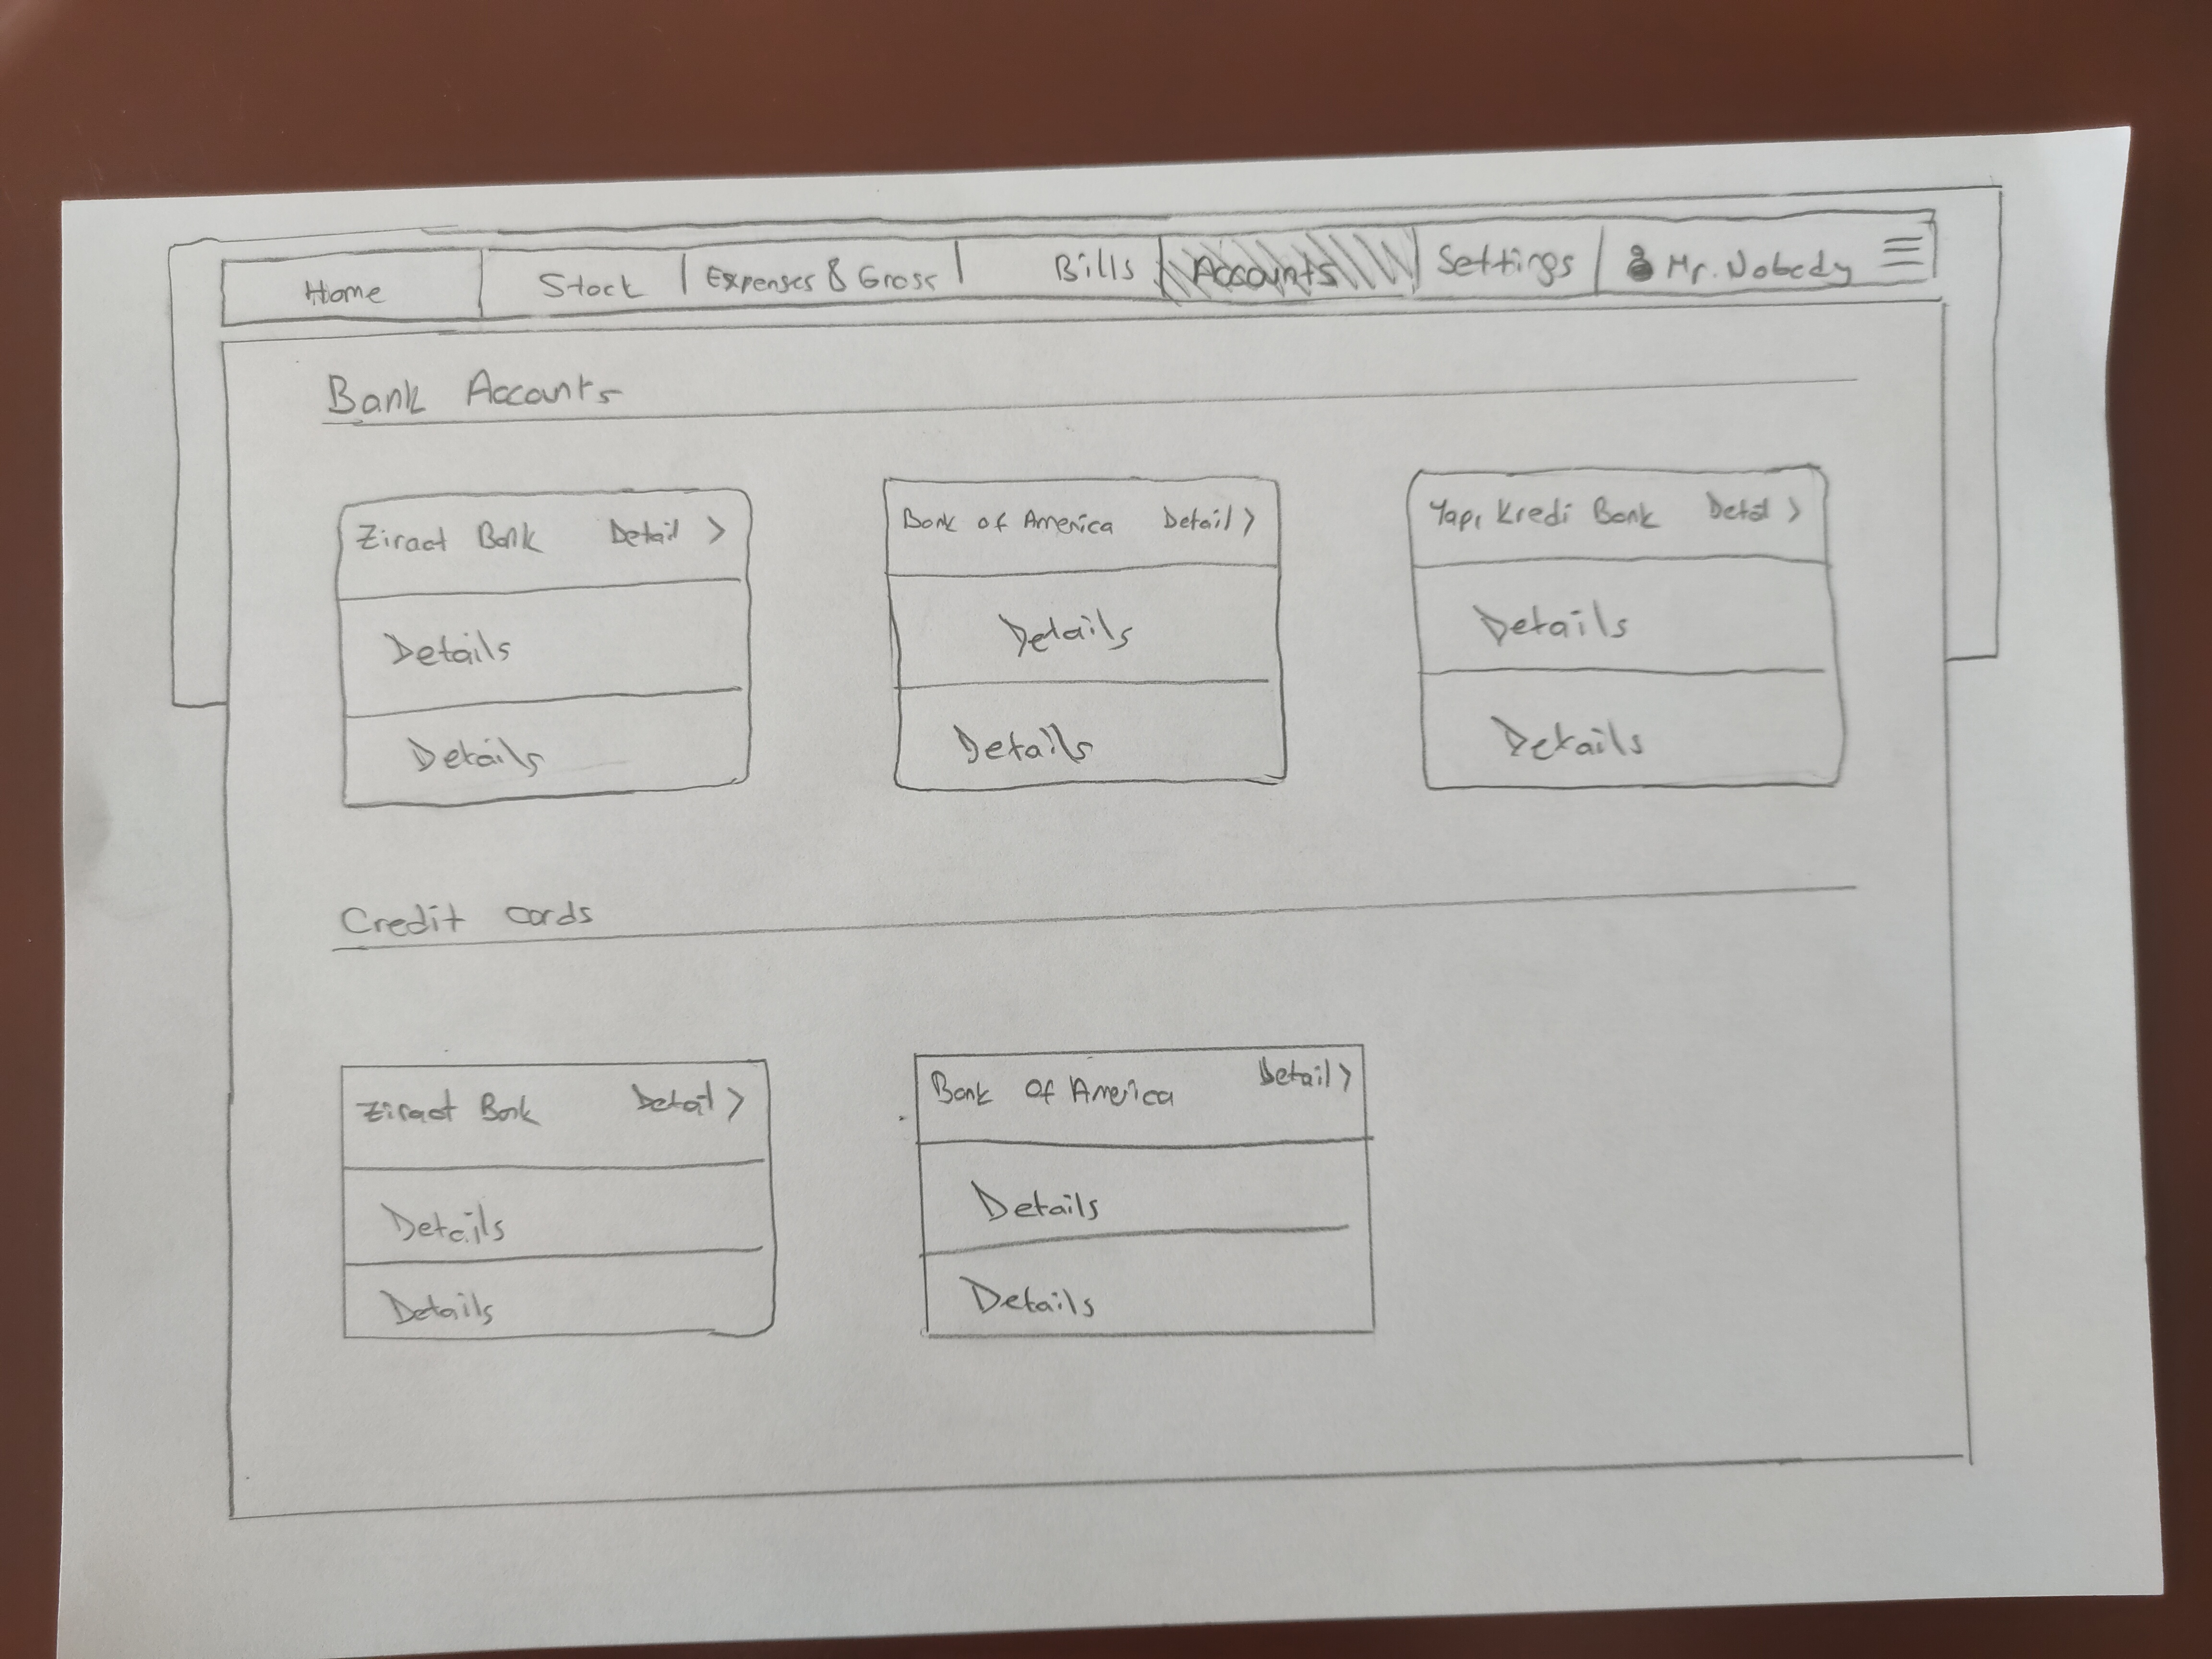 Home Stock Expenses & Gross Bills Accounts Settings Mr. Nobody
Bank Accounts
Ziraat Bank Detail >
Details
Details
Bank of America Detail >
Details
Details
Yapı Kredi Bank Detail >
Details
Details
Credit cards
Ziraat Bank Detail >
Details
Details
Bank Of America Detail >
Details
Details